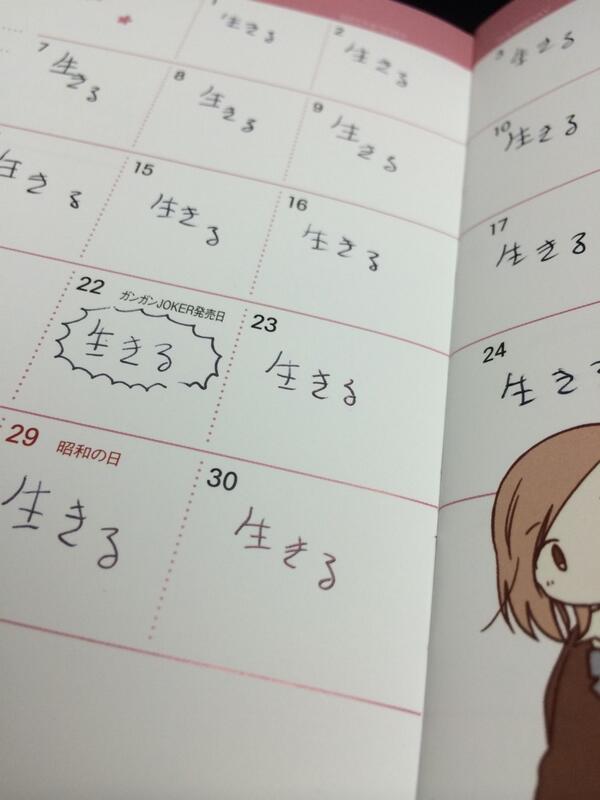 1
生きる
2
生きる
3
生きる
7
生きる
8
生きる
9
生きる
10
生きる
生きる
15
生きる
16
生きる
17
生きる
22 ガンガンJOKER発売日
生きる
23
生きる
24
生きる
29 昭和の日
生きる
30
生きる